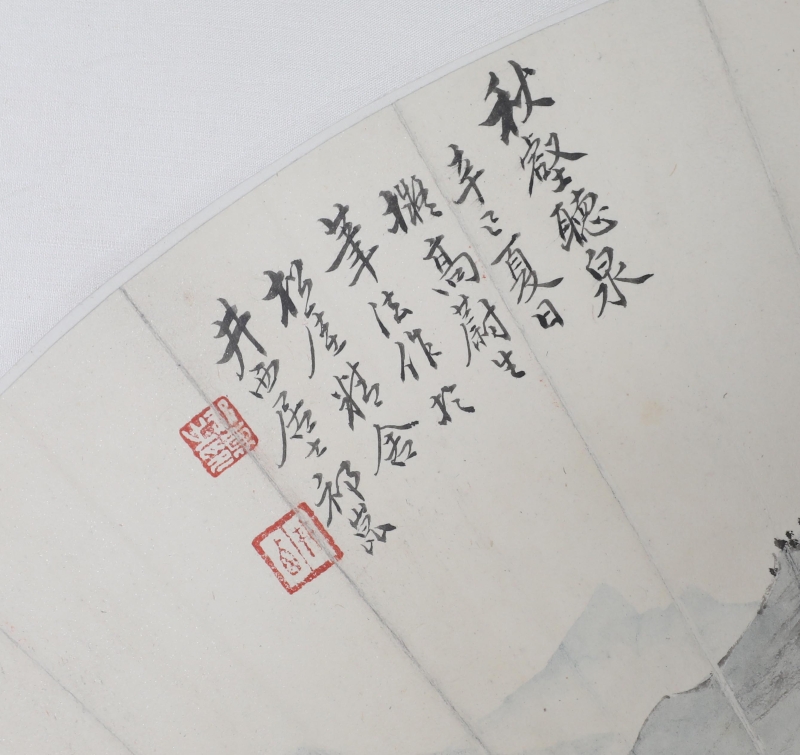 秋壑聽泉
辛巳夏日
擬高蔚生
筆法作於
松厓精舍
井西居士祁崑